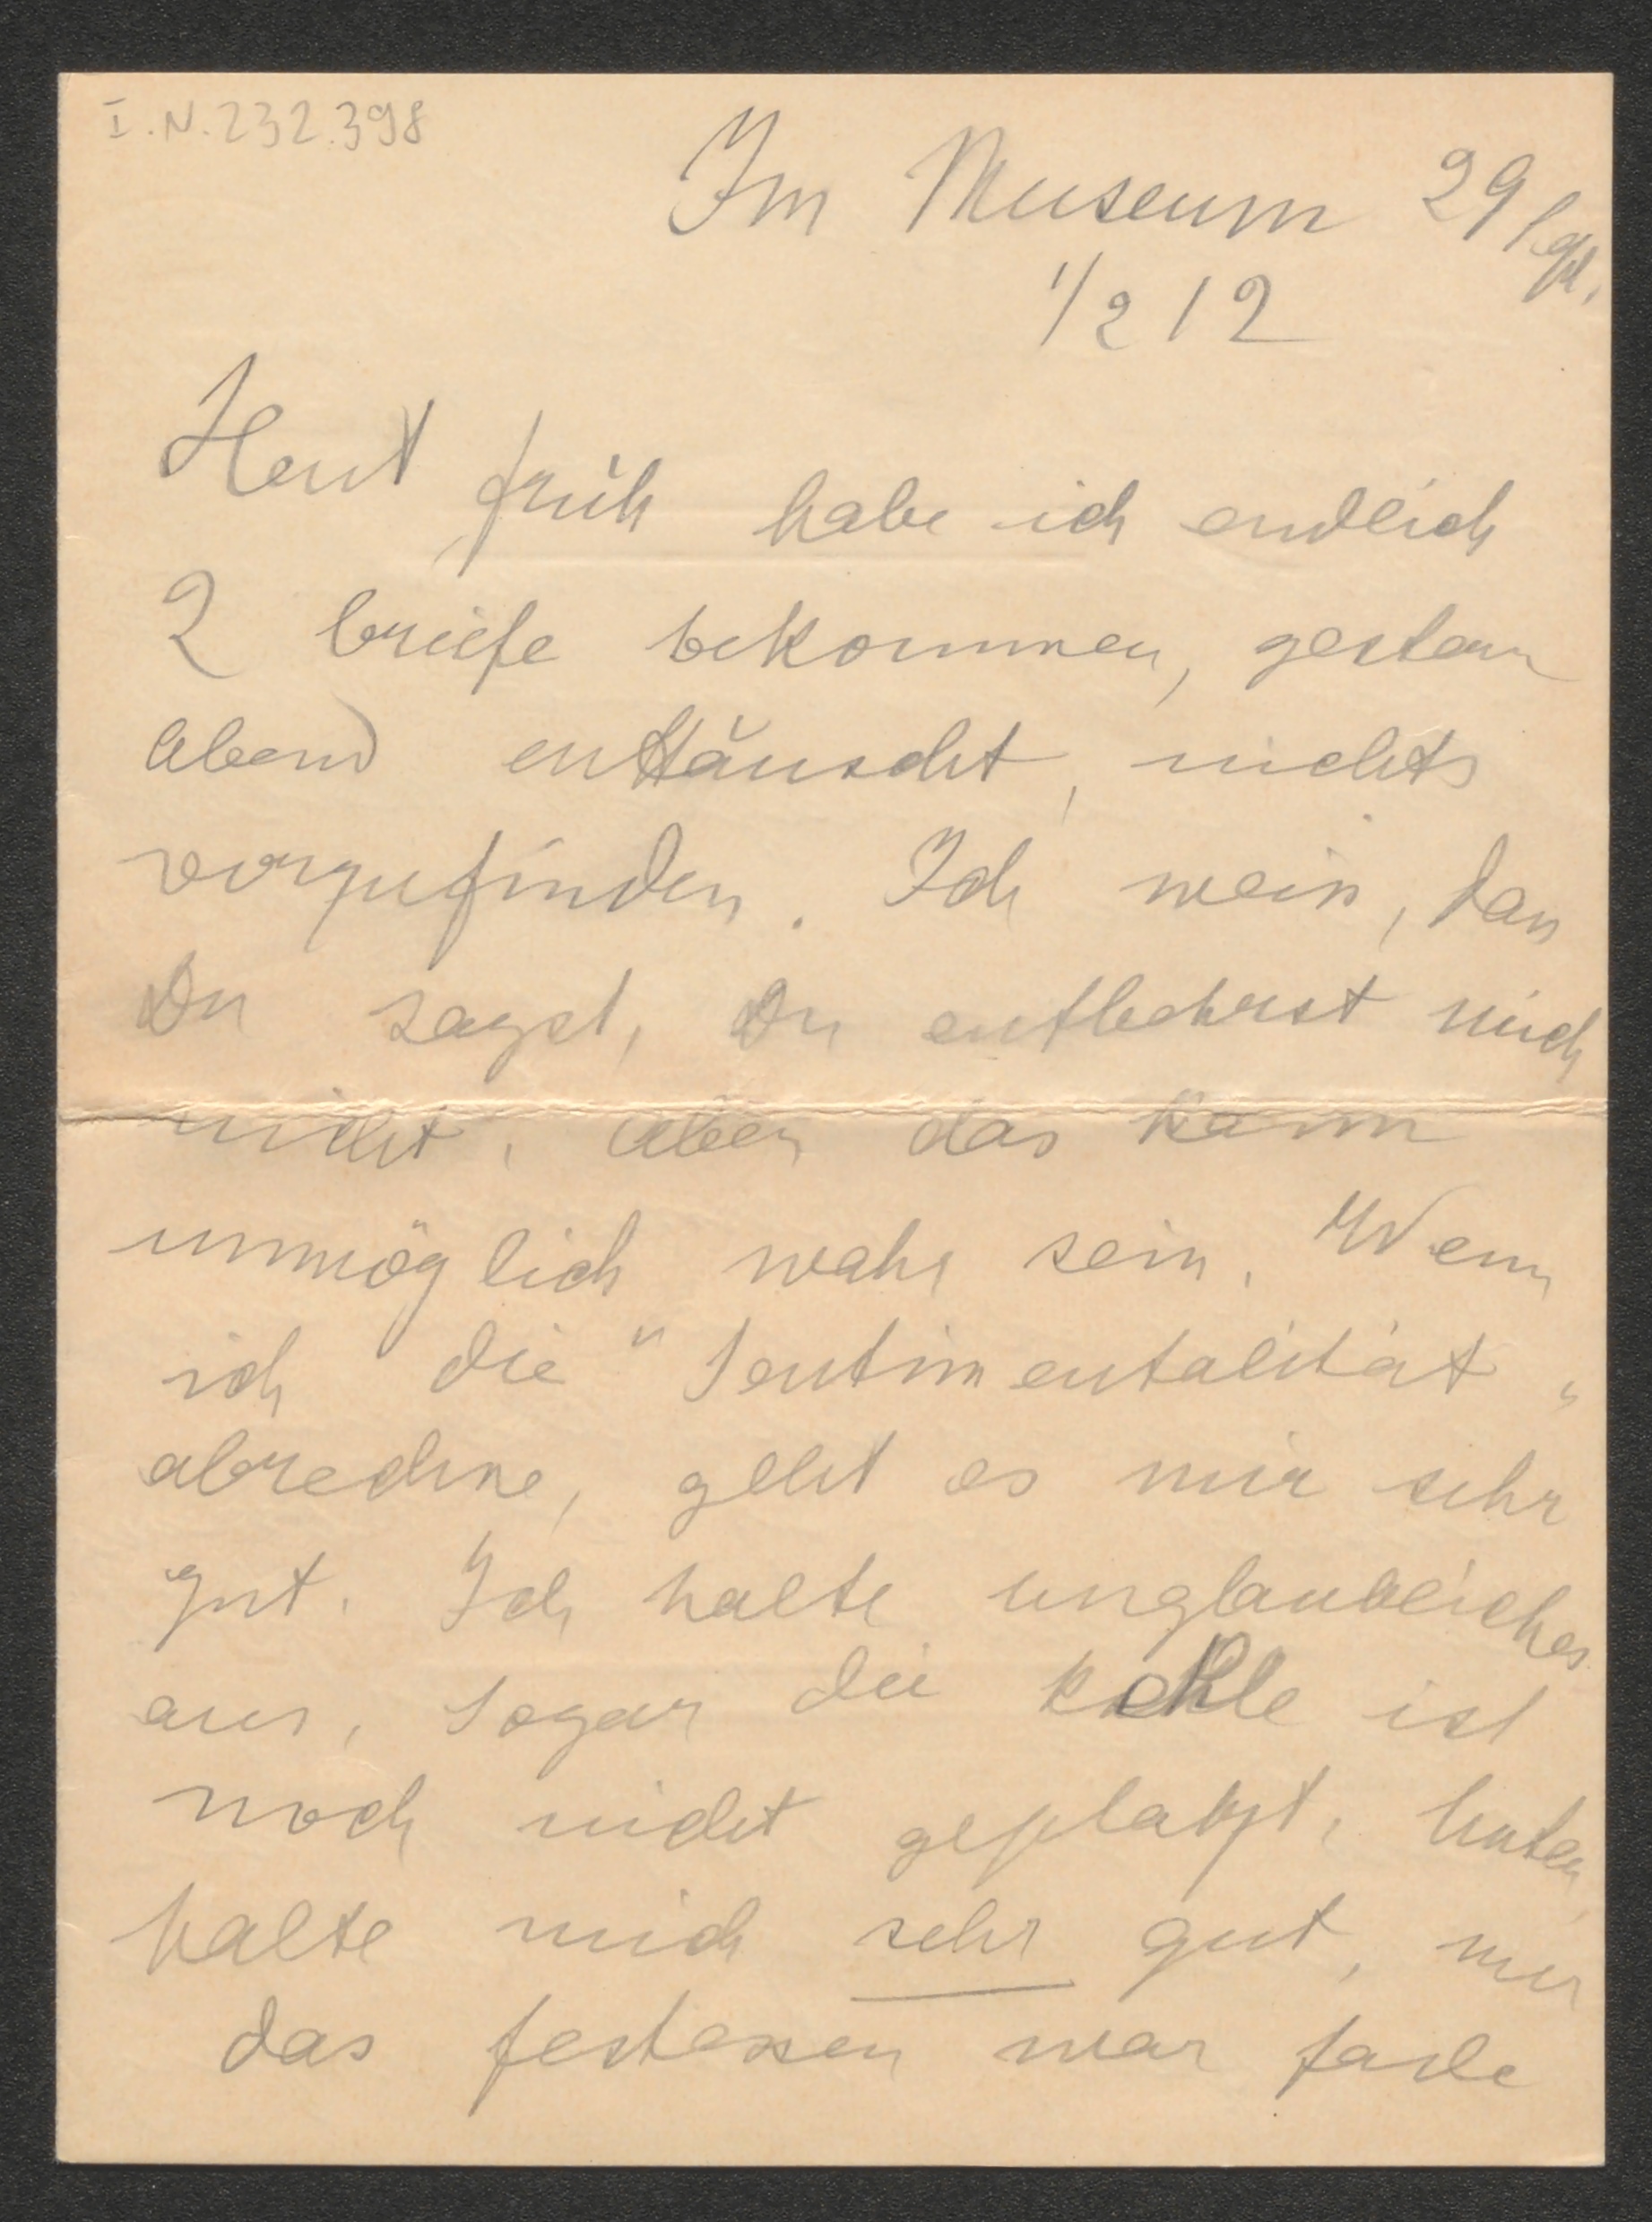 I.N.232.398
Im Museum 29
1/2 12
Heut früh habe ich endlich
2 briefe bekommen, gestern
abend enttäuscht, nichts
vorzufinden. Ich weiss, dass
Du sagst, Du entbehrst mich
nicht, aber das kann
unmöglich wahr sein. Wenn
ich die "Sentimentalität"
abrechne, geht es mir sehr
gut. Ich halte unglaubliches
aus, sogar die ist
noch nicht geplatzt. Unter
halte mich sehr gut, nur
das festessen war fade